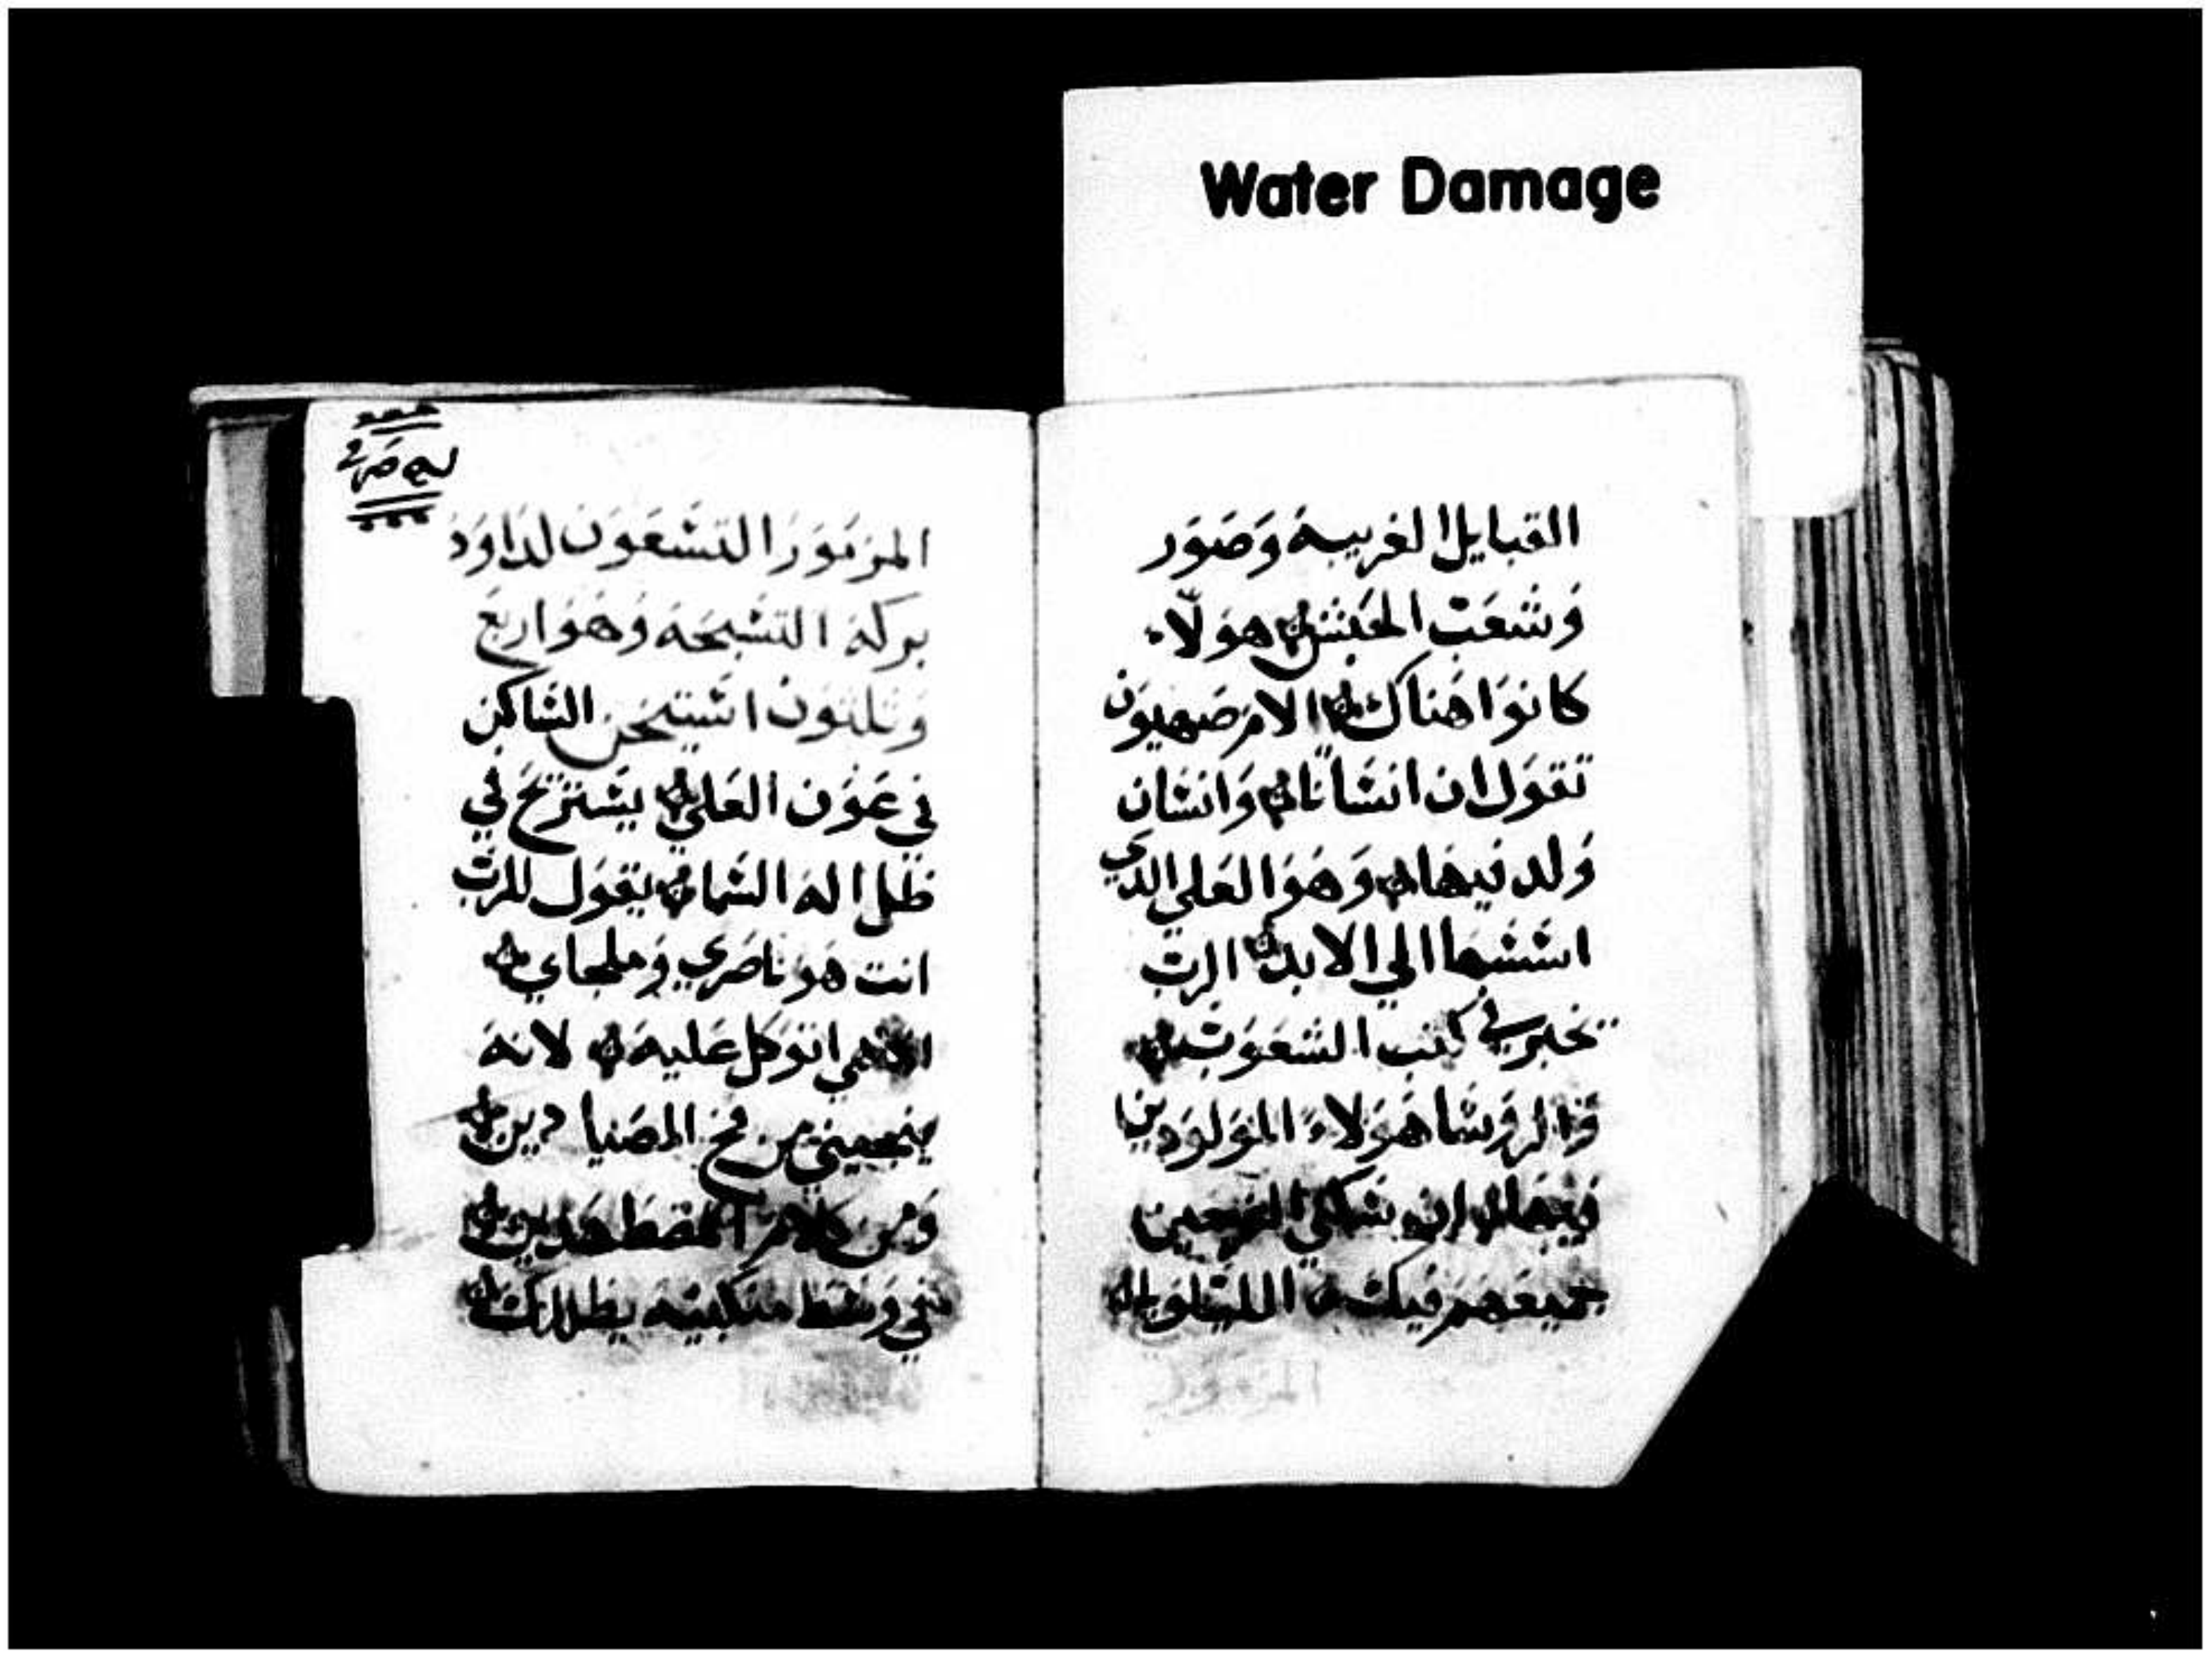 Water Damage
القبايل الغريبه وصور
وشعب الحبش هولاء
كانوا هناك الام صهيون
تقول ان انسانا وانسان
ولد فيها وهوا العلي الدي
اسسها الي الابد الرب
يخبر في كتب الشعوب
والروسا هولاء المولودين
فيها لان سكني الفرحين
جميعهم فيك الليلويا
المزمور
المزمور التسعون لداود
بركة التسبحه وهو اربع
وتلتون استيخن الساكن
في عون العلي يستريح في
ظل اله السما يقول للرب
انت هو ناصري وملجاي
الاهي اتوكل عليه لانه
ينجيني من فخ الصيادين
ومن كلام المضطهدين
في وسط منكبيه يظللك